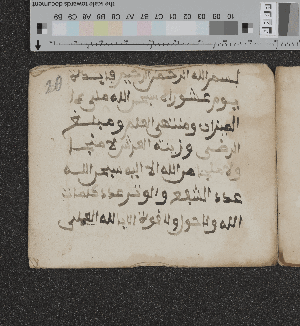 بسم الله الرحمن الرحيم فايدة
يوم عشوراء سبحن الله ملء
الميزان ومنتهى العلم ومبلغ
الرضى وزينة العرش لا منجا
ولا ملجا من الله الا اليه سبحن الله
عدد الشفع والوتر عدد كلمات
الله ولا حول ولا قوة الا بالله العلي
20